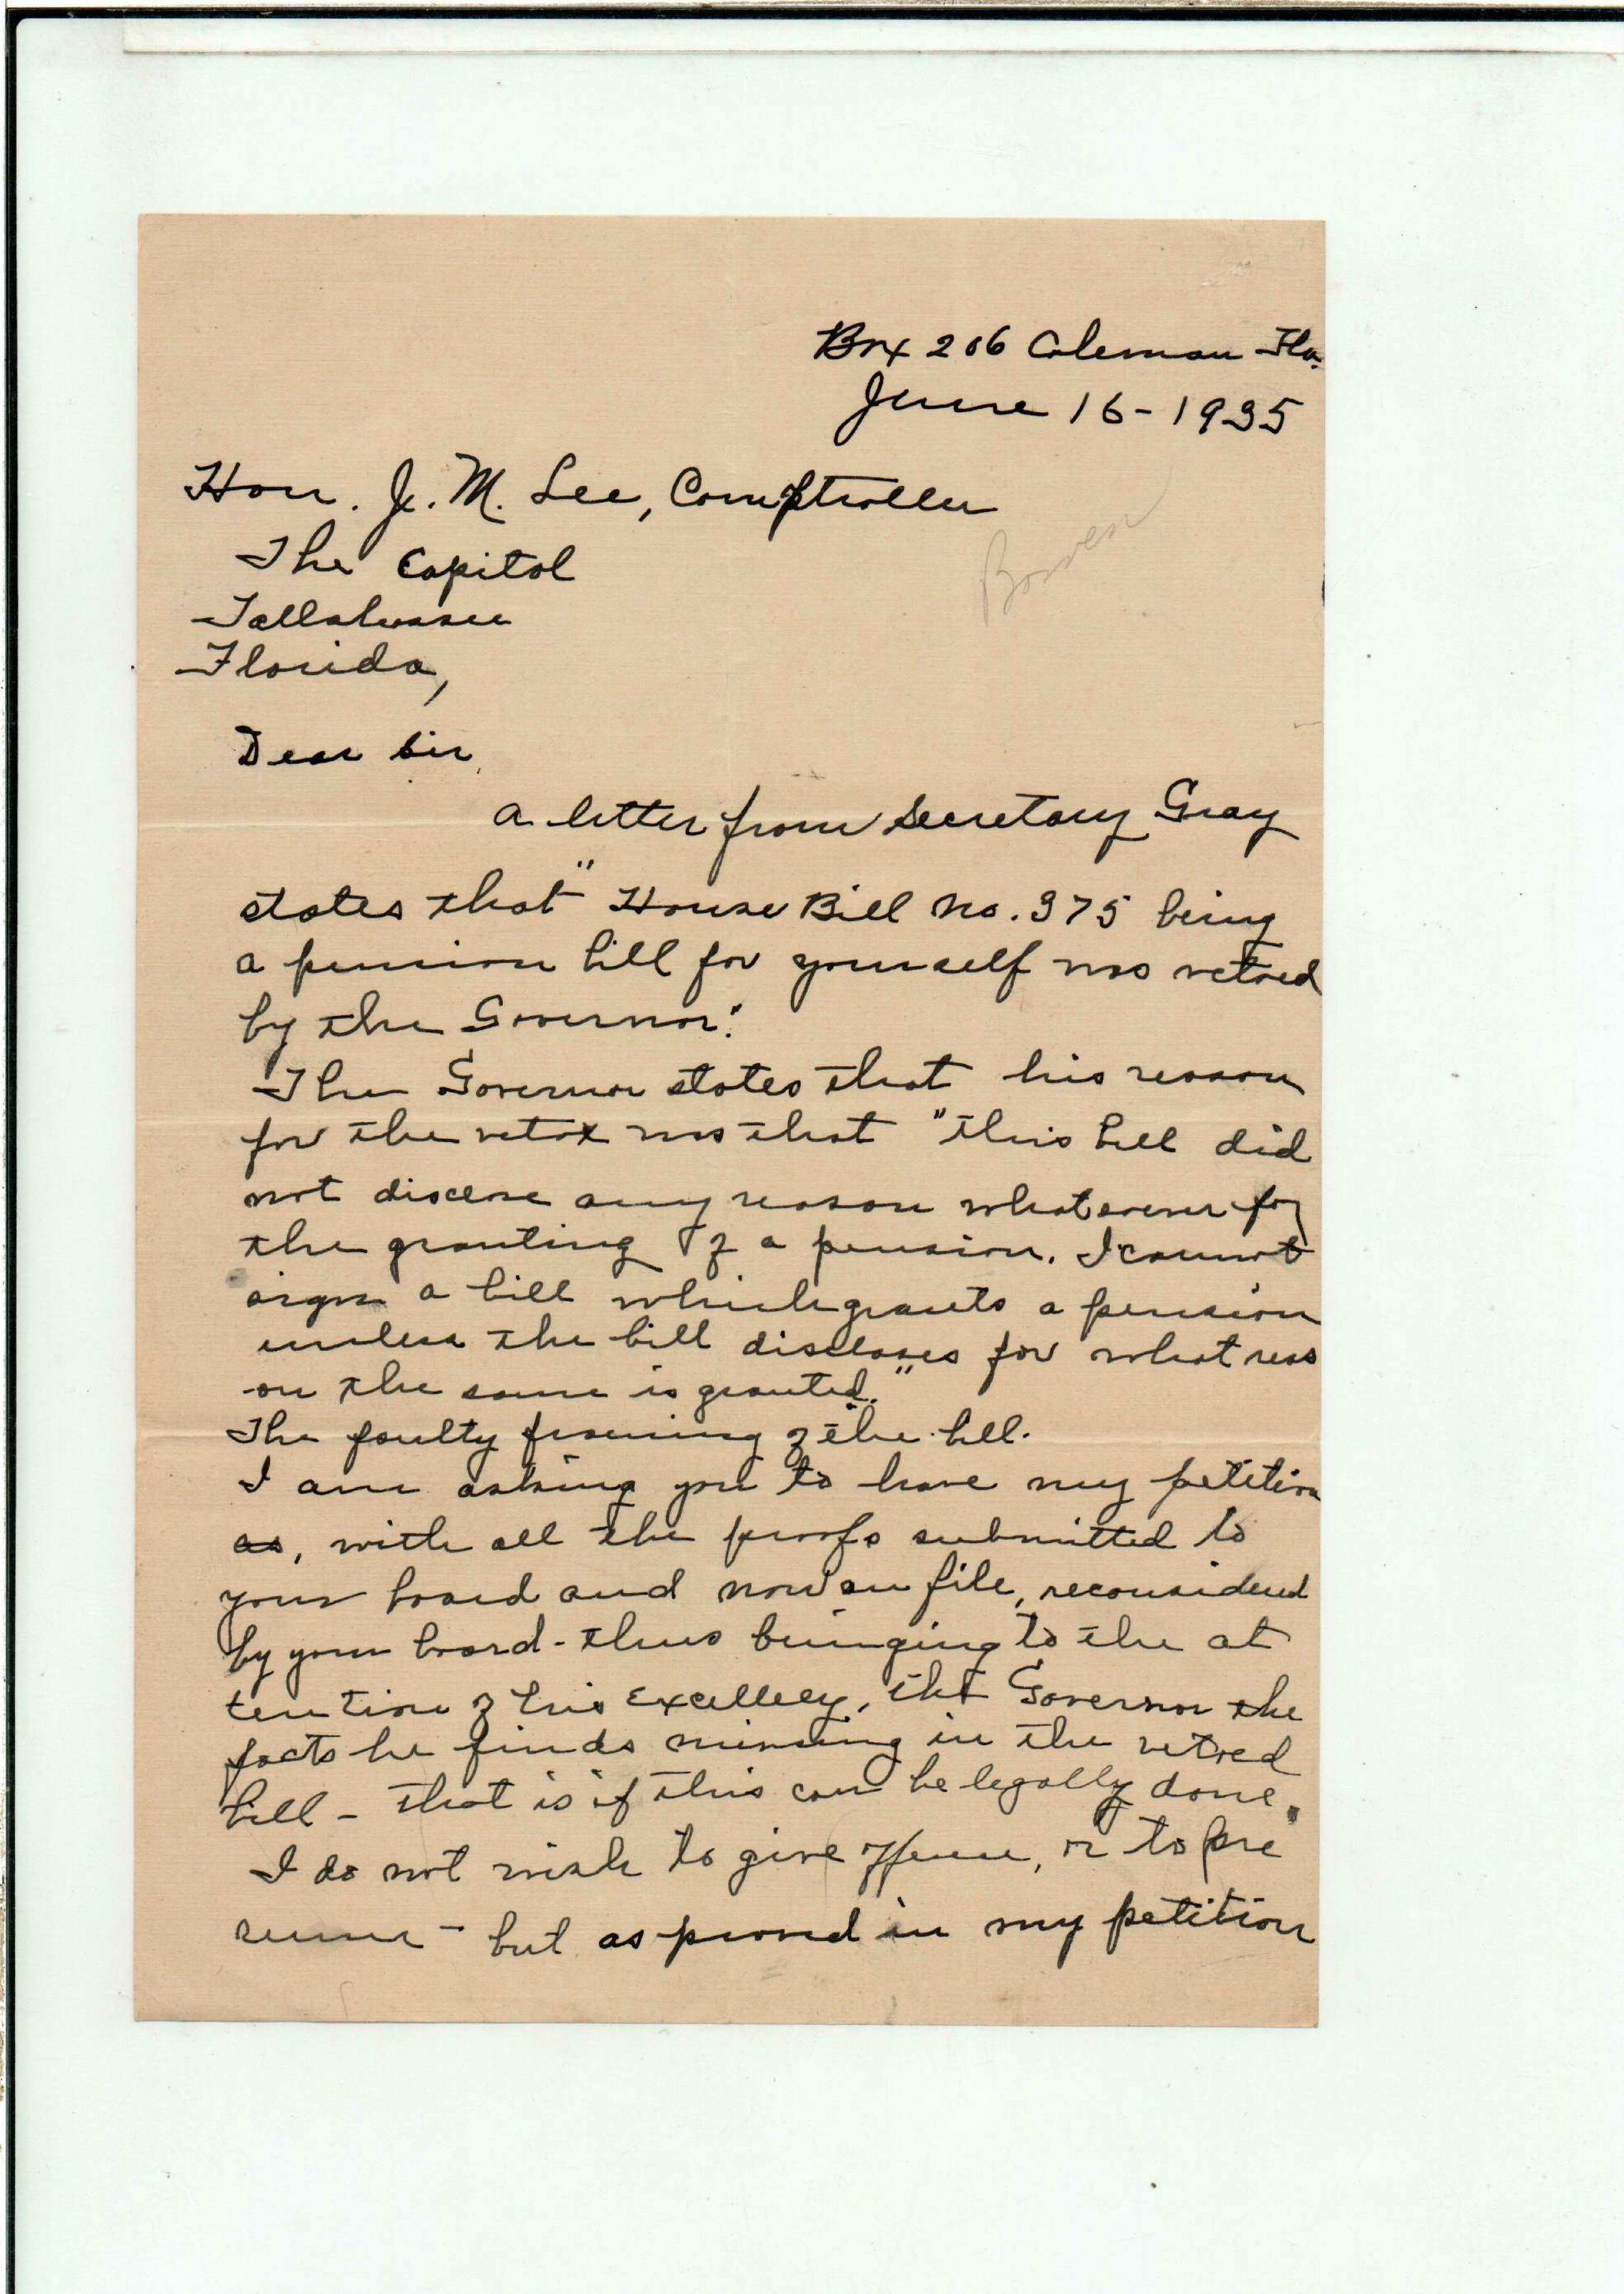 Box 206 Coleman Fla.
June 16-1935
Hon. J. M. Lee, Comptroller
Bowen
The Capitol
Tallahassee
Florida,
Dear Sir,
A letter from Secretary Gray
states that "House Bill No. 375 being
a pension bill for yourself was vetoed
by the Governor."
The Governor states that his reason
for the veto was that "this bill did
not disclose any reason whatsoever for
the granting of a pension. I cannot
sign a bill which grants a pension
unless the bill discloses for what reas
-on the same is granted."
The faulty framing of the bill.
I am asking you to have my petition
as, with all the proofs submitted to
your board and now on file, reconsidered
by your board - thus bringing to the at
tention of his Excellecy, the Governor the
facts he finds missing in the vetoed
bill - that is if this can be legally done.
I do not wish to give offense, or to pre
sume - but as proved in my petition